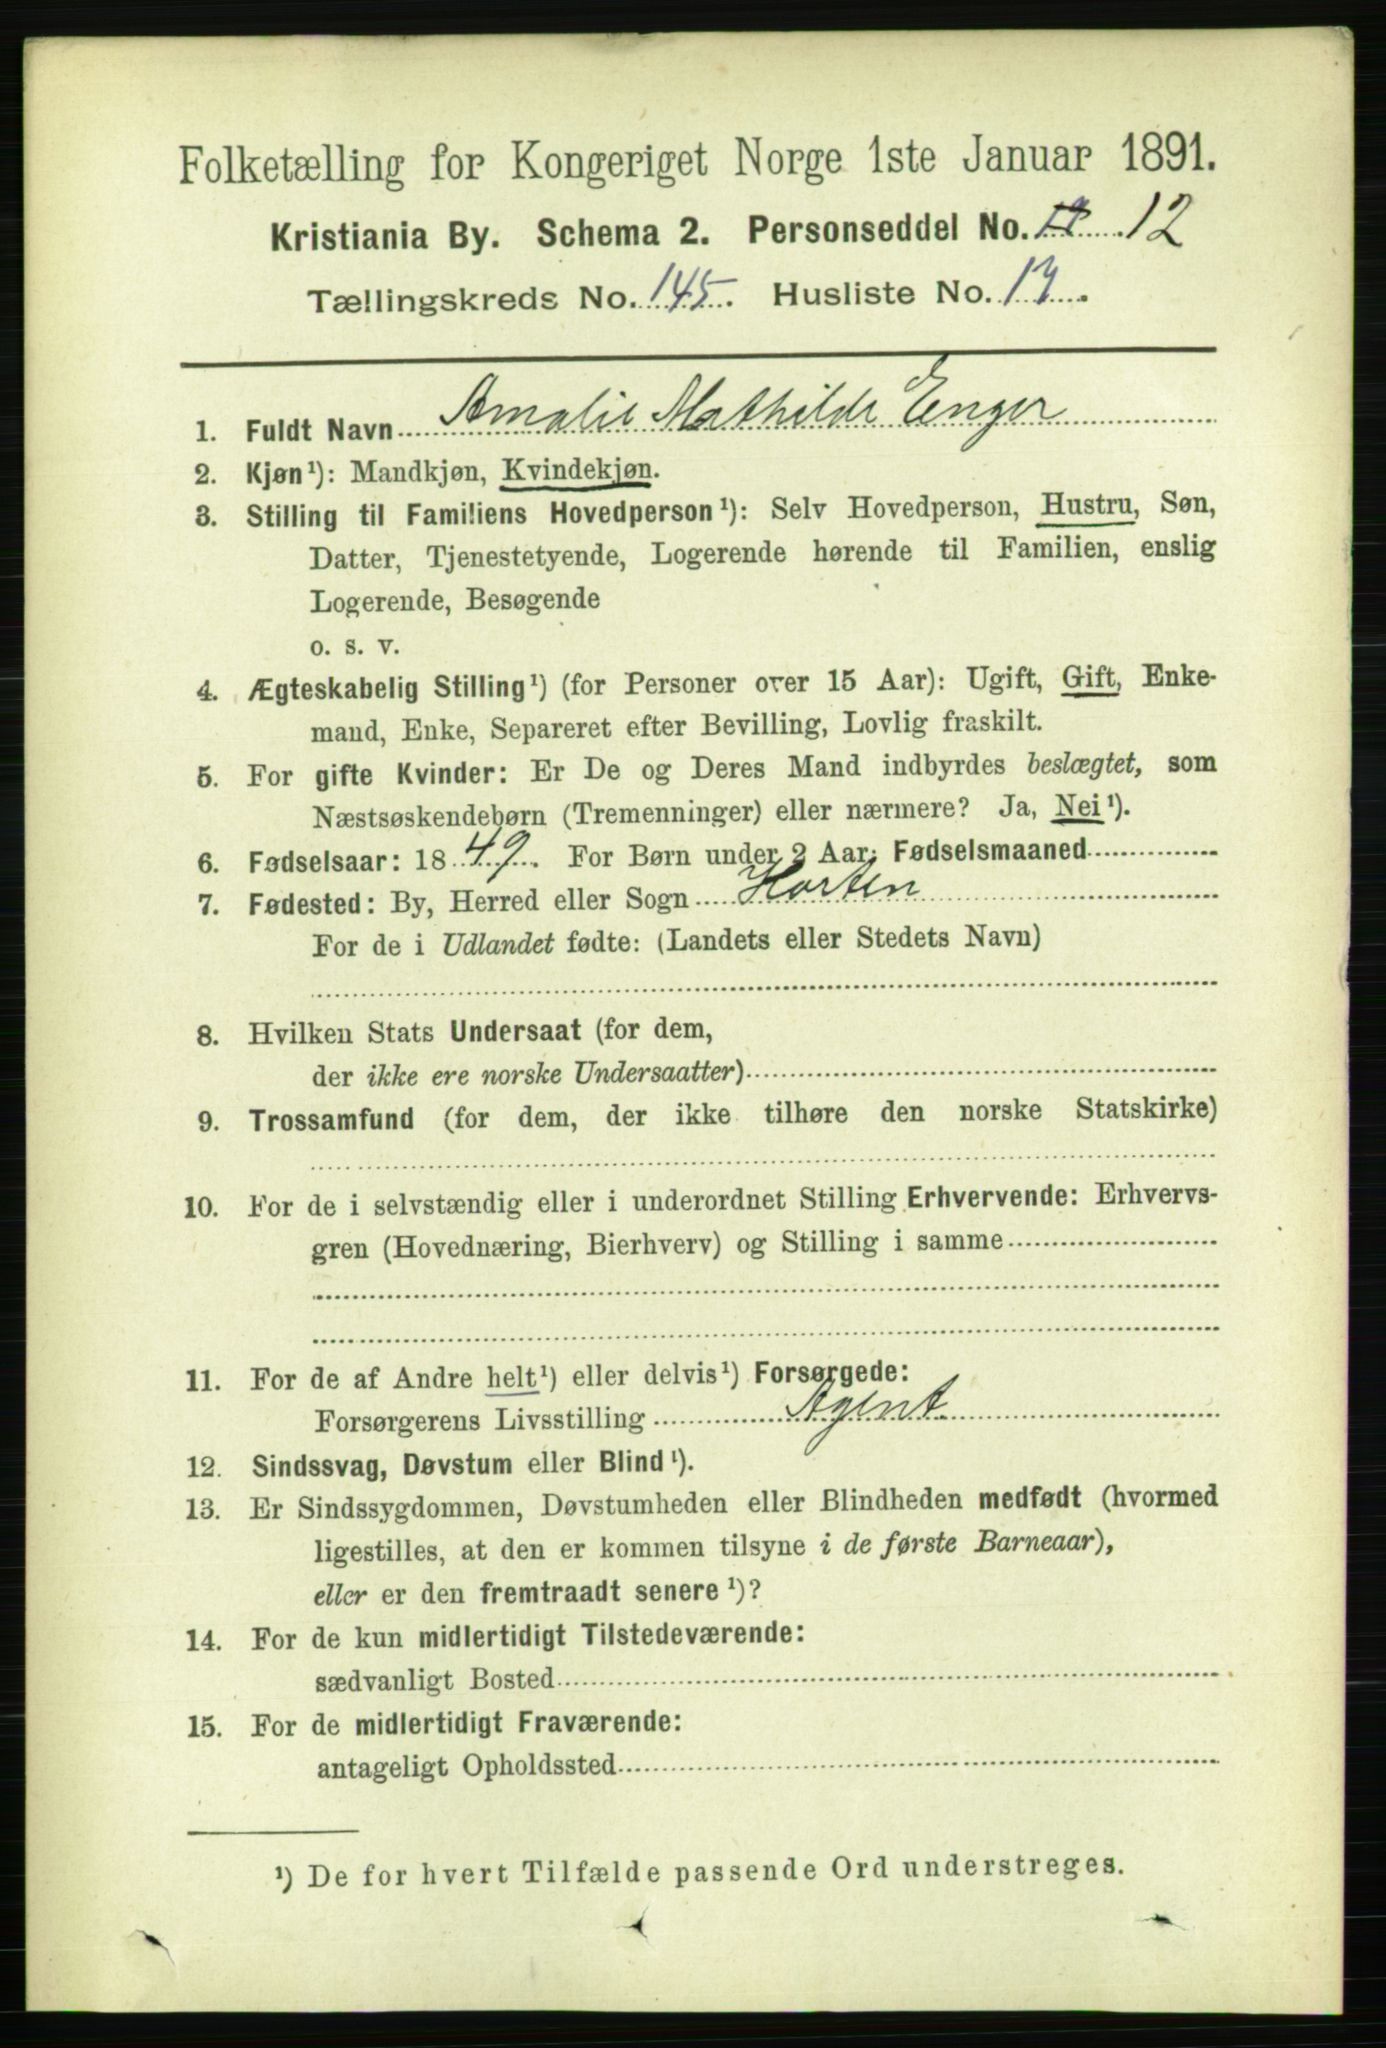 Folketælling for Kongeriget Norge 1ste Januar 1891.
Kristiania By. Schema 2. Personseddel No. 12
Tællingskreds No. 145. Husliste No. 13.
1. Fuldt Navn Amalie Mathilde Enger
2. Kjøn¹): Mandkjøn, Kvindekjøn.
3. Stilling til Familiens Hovedperson¹): Selv Hovedperson, Hustru, Søn,
Datter, Tjenestetyende, Logerende hørende til Familien, enslig
Logerende, Besøgende
o. s. v.
4. Ægteskabelig Stilling¹) (for Personer over 15 Aar): Ugift, Gift, Enke-
mand, Enke, Separeret efter Bevilling, Lovlig fraskilt.
5. For gifte Kvinder: Er De og Deres Mand indbyrdes beslægtet, som
Næstsøskendebørn (Tremenninger) eller nærmere? Ja, Nei¹).
6. Fødselsaar: 1849. For Børn under 2 Aar: Fødselsmaaned
7. Fødested: By, Herred eller Sogn Horten
For de i Udlandet fødte: (Landets eller Stedets Navn)
8. Hvilken Stats Undersaat (for dem,
der ikke ere norske Undersaatter)
9. Trossamfund (for dem, der ikke tilhøre den norske Statskirke)
10. For de i selvstændig eller i underordnet Stilling Erhvervende: Erhvervs-
gren (Hovednæring, Bierhverv) og Stilling i samme
11. For de af Andre helt¹) eller delvis¹) Forsørgede:
Forsørgerens Livsstilling Agent
12. Sindssvag, Døvstum eller Blind¹).
13. Er Sindssygdommen, Døvstumheden eller Blindheden medfødt (hvormed
ligestilles, at den er kommen tilsyne i de første Barneaar),
eller er den fremtraadt senere¹)?
14. For de kun midlertidigt Tilstedeværende:
sædvanligt Bosted
15. For de midlertidigt Fraværende:
antageligt Opholdssted
¹) De for hvert Tilfælde passende Ord understreges.